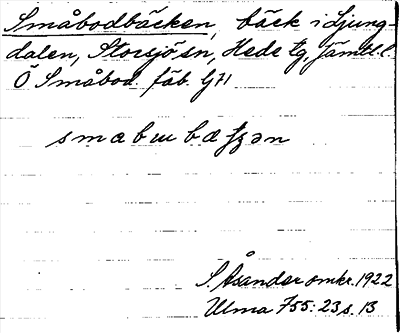 Småbodbäcken, bäck i Ljung-
dalen, Storsjö sn, Hede tg, Jämtl. l.
Ö Småbod. fäb. G71
smabuubæʈʂən
S. Åsander omkr. 1922
Ulma 755: 23 s. 13